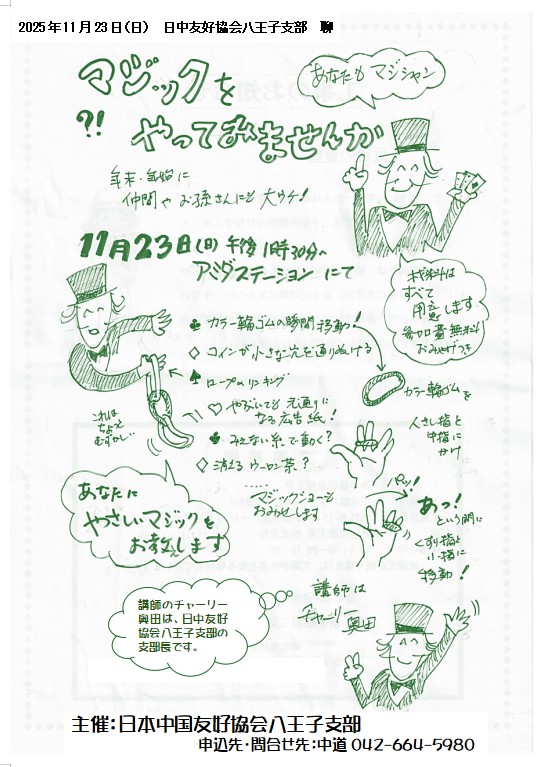 2025年11月23日(日) 日中友好協会八王子支部 聊
マジックを
?!
やってみませんか
あなたもマジシャン
年末・年始に
仲間やお孫さんにも大ウケ!
11月23日(日)午後1時30分〜
アミダステーションにて
材料は
すべて
用意します
参加費無料
おみやげつき
♣ カラー輪ゴムの瞬間移動!
♢ コインが小さな穴を通りぬける
♠ ロープのリンキング
♡ やぶいても元通りに
なる広告紙!
♣ みえない糸で動く?
♢ 消えるウーロン茶?
……
マジックショーも
おみせします
これは
ちょっと
むずかしい
カラー輪ゴムを
人さし指と
中指に
かけ
パッ!
あっ!
という間に
くすり指と
小指に
移動!
あなたに
やさしいマジックを
お教えします
講師は
チャーリー
奥田
講師のチャーリー
奥田は、日中友好
協会八王子支部の
支部長です。
主催:日本中国友好協会八王子支部
申込先・問合せ先:中道 042-664-5980